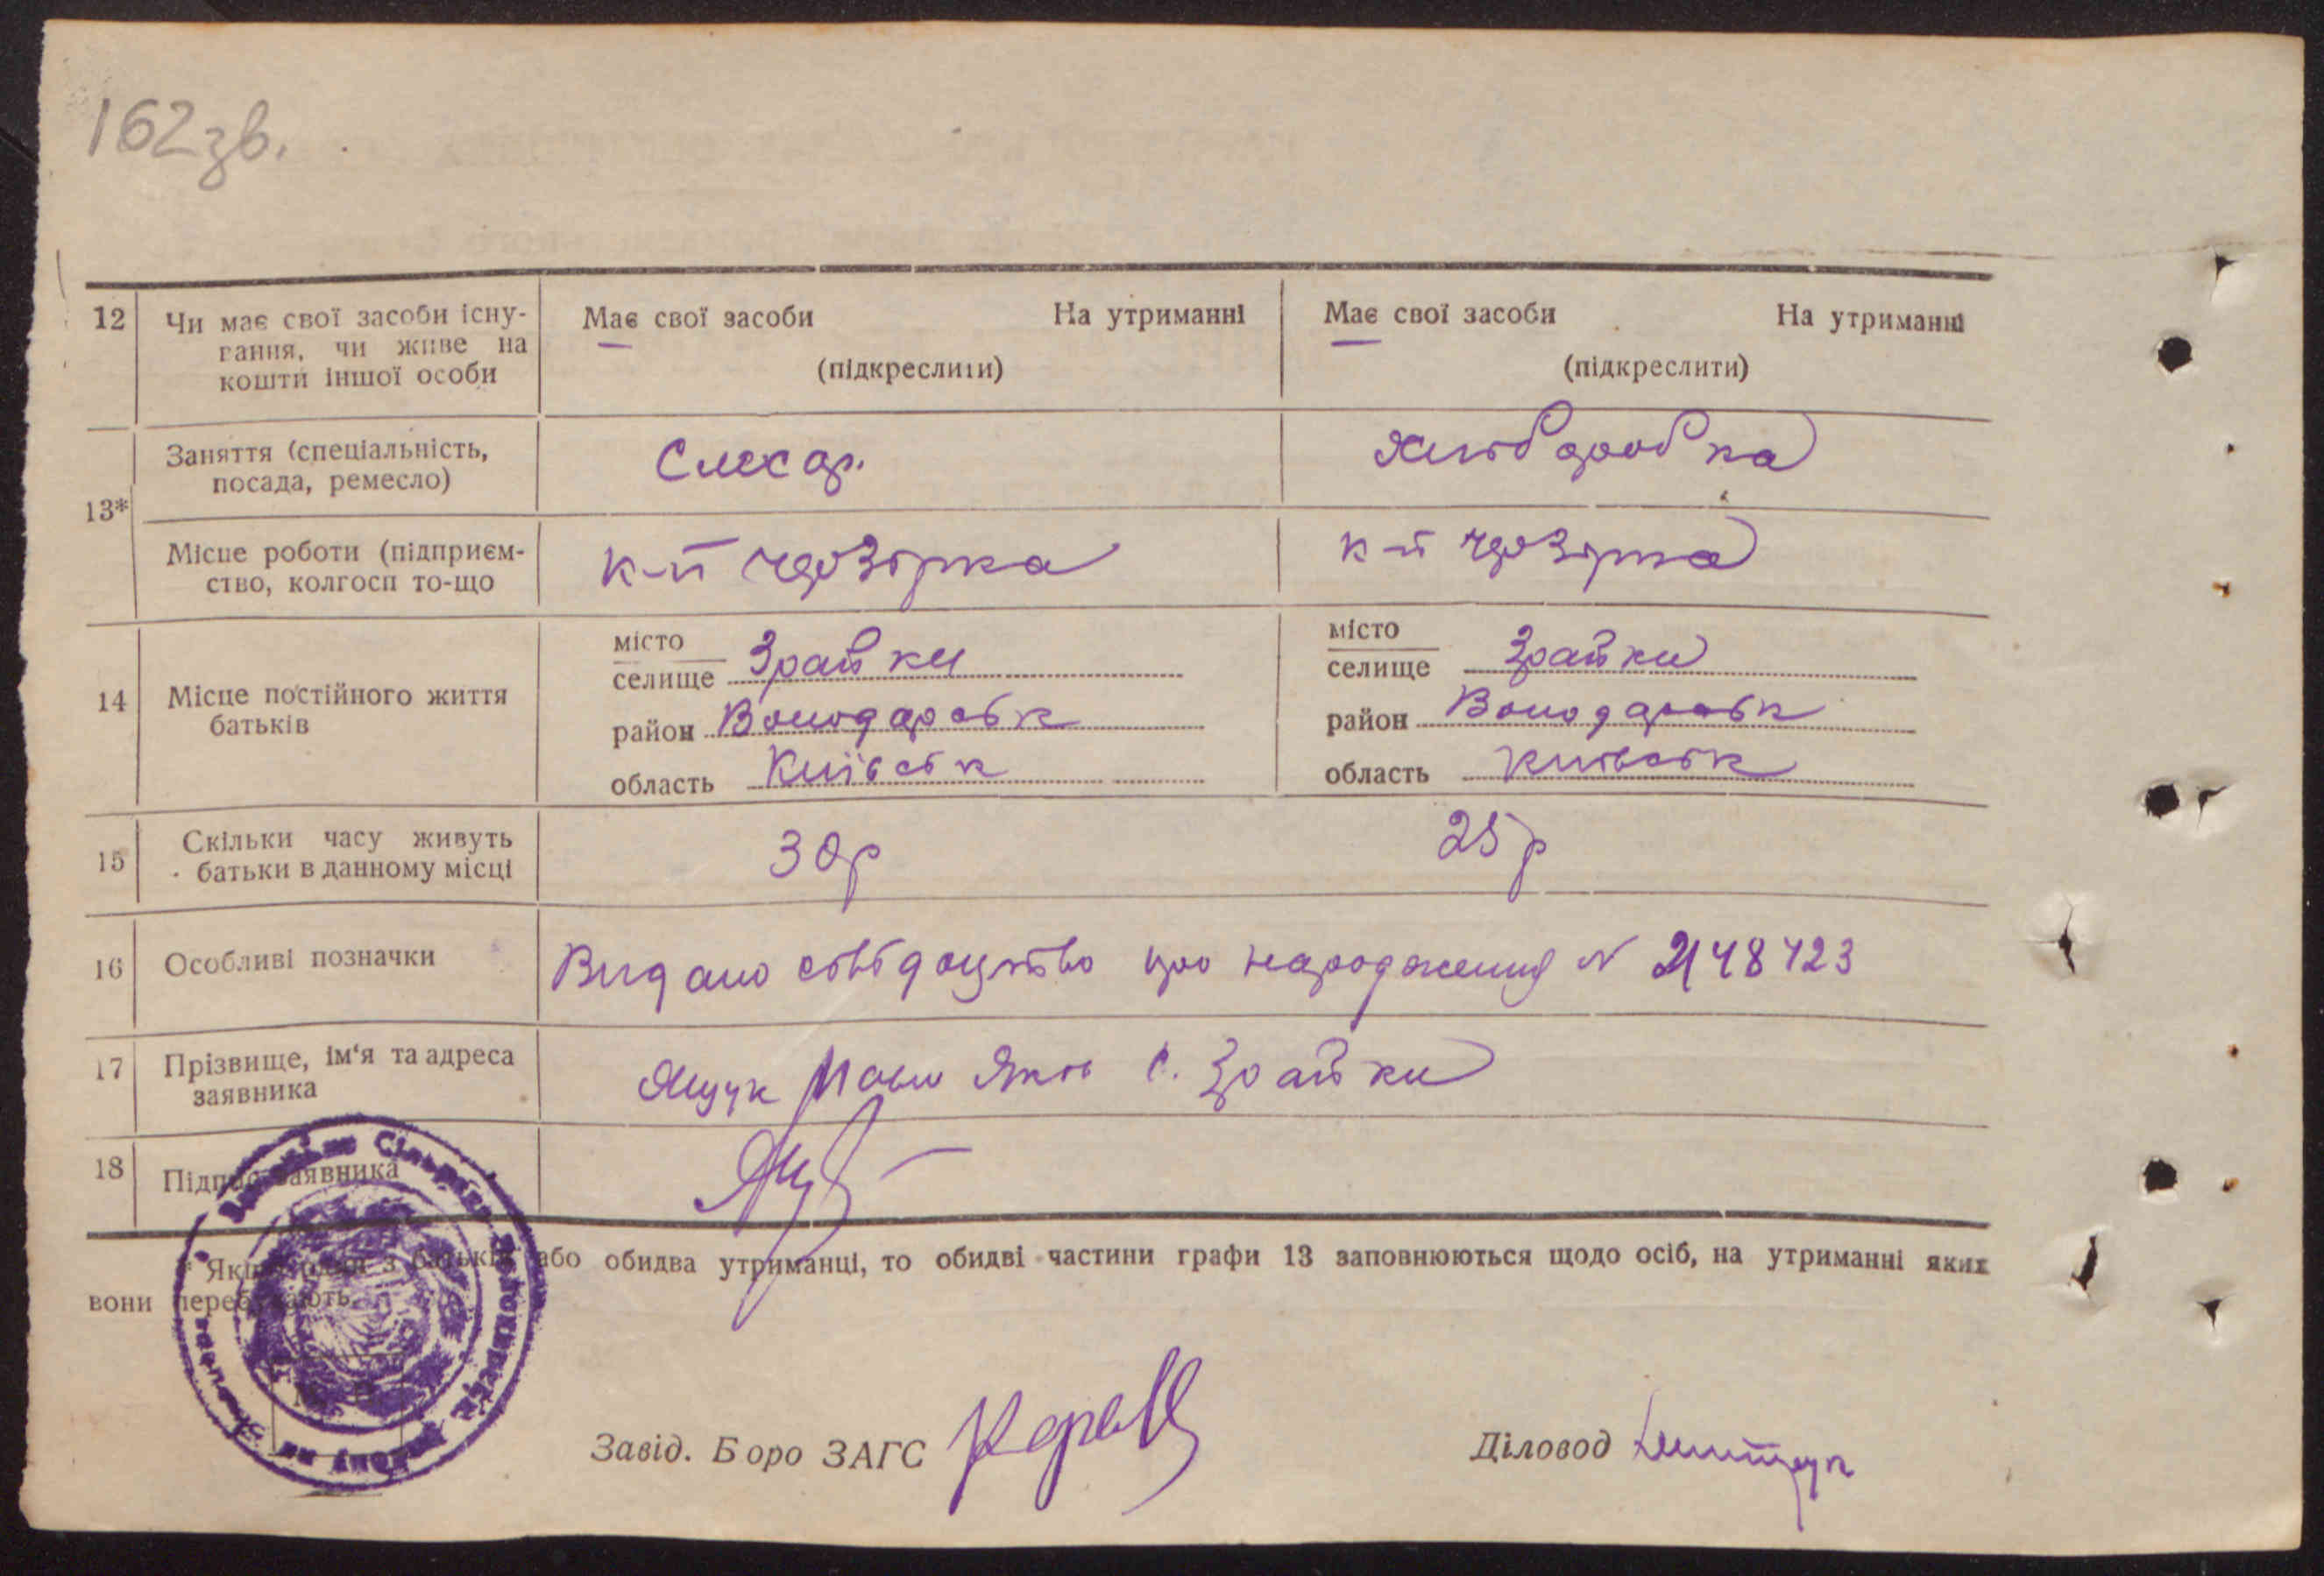 162зв.
12 Чи має свої засоби існу-
вання, чи живе на
кошти іншої особи
Має свої засоби На утриманні
(підкреслити)
Має свої засоби На утриманні
(підкреслити)
13*
Заняття (спеціальність,
посада, ремесло)
Слесар.
Хлібдобка
Місце роботи (підприєм-
ство, колгосп то-що
к-п Чрвзірка
к-п Чрвзірка
14 Місце постійного життя
батьків
місто
селище Зрайки
район Володарськ
область Київськ
місто
селище Зрайки
район Володарськ
область Київськ
15 Скільки часу живуть
батьки в данному місці
30р
25р
16 Особливі позначки
Видано свідоцтво про народження N
17 Прізвище, ім'я та адреса
заявника
Ящук Яків с. Зрайки
18 Підпис заявника
* Якщо один з батьків або обидва утриманці, то обидві частини графи 13 заповнюються щодо осіб, на утриманні яких
вони перебувають.
Завід. Боро ЗАГС
Діловод